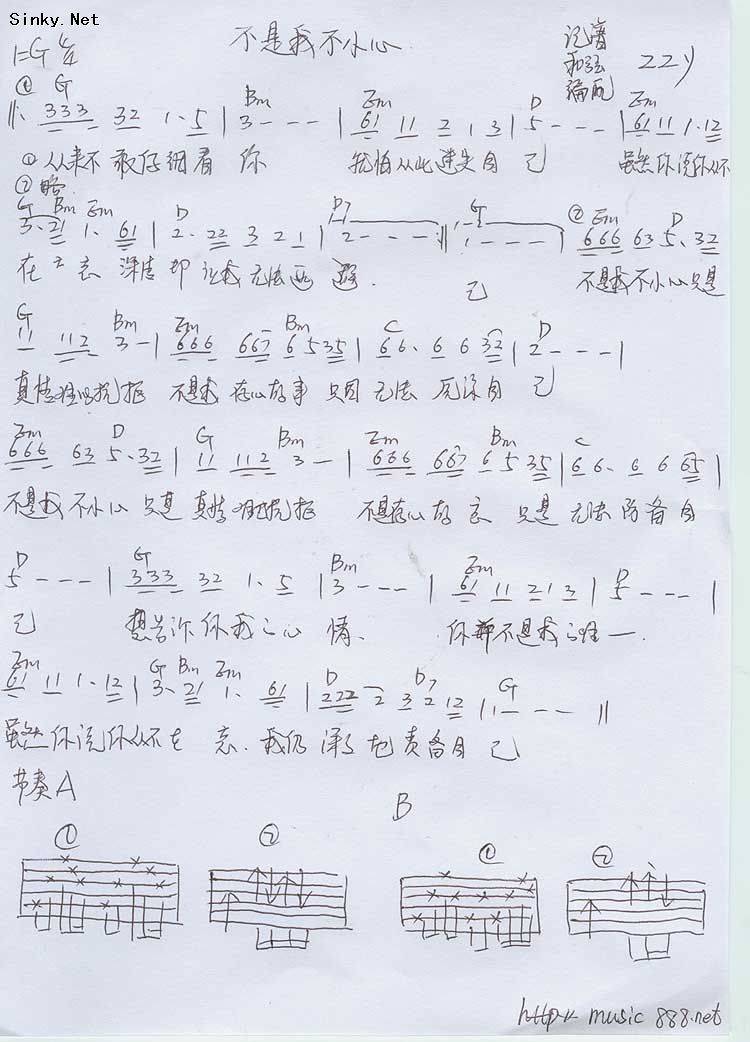 Sinky.Net
不是我不小心
1=G 4/4
记谱 和弦 编配 ZZY
① G Bm Em D Em
333 32 1· 5 | 3 - - - | 61 11 2 1 3 | 5 - - - | 61 11 1·12
① 从来不敢仔细看你 我怕从此迷失自己 虽然你说你从不
② 略.
G Bm Em D D7 G ② Em D
3·21 1· 61 | 2· 22 3 2 1 | 2 - - - :|| 1 - - - | 666 63 5·32
在意 深情却让我无法
己 不是我不小心只是
G Bm Em Bm C D
11 112 3 - | 666 667 6 535 | 66· 6 6 32 | 2 - - - |
真情难以抗拒 不是我存心故事 只因无法 自己
Em D G Bm Em Bm C
666 63 5·32 | 11 112 3 - | 666 667 6 5 35 | 66· 6 6 65 |
不是我不小心只是真情难以抗拒 不是存心故意 只是无法防备自
D G Bm Em D
5 - - - | 333 32 1· 5 | 3 - - - | 61 11 21 3 | 5 - - - |
己 你我之心情、 你都不是我 一.
Em G Bm Em D D7 G
61 11 1·12 | 3·21 1· 61 | 222 2 3 2 12 | 1 - - - ||
虽然你说你从不在意.我仍深深地责备自己
节奏A B
① ② ① ②
http:// music 888.net